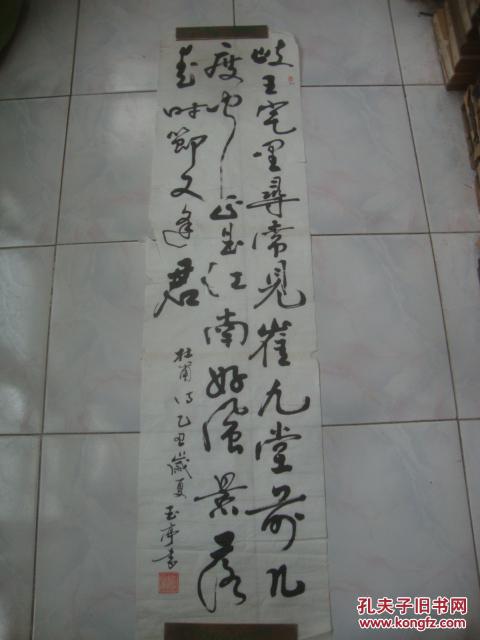 岐王宅里尋常見崔九堂前几
度闻正是江南好风景落
花时节又逢君
杜甫诗乙丑岁夏玉亭书
孔夫子旧书网
www.kongfz.com